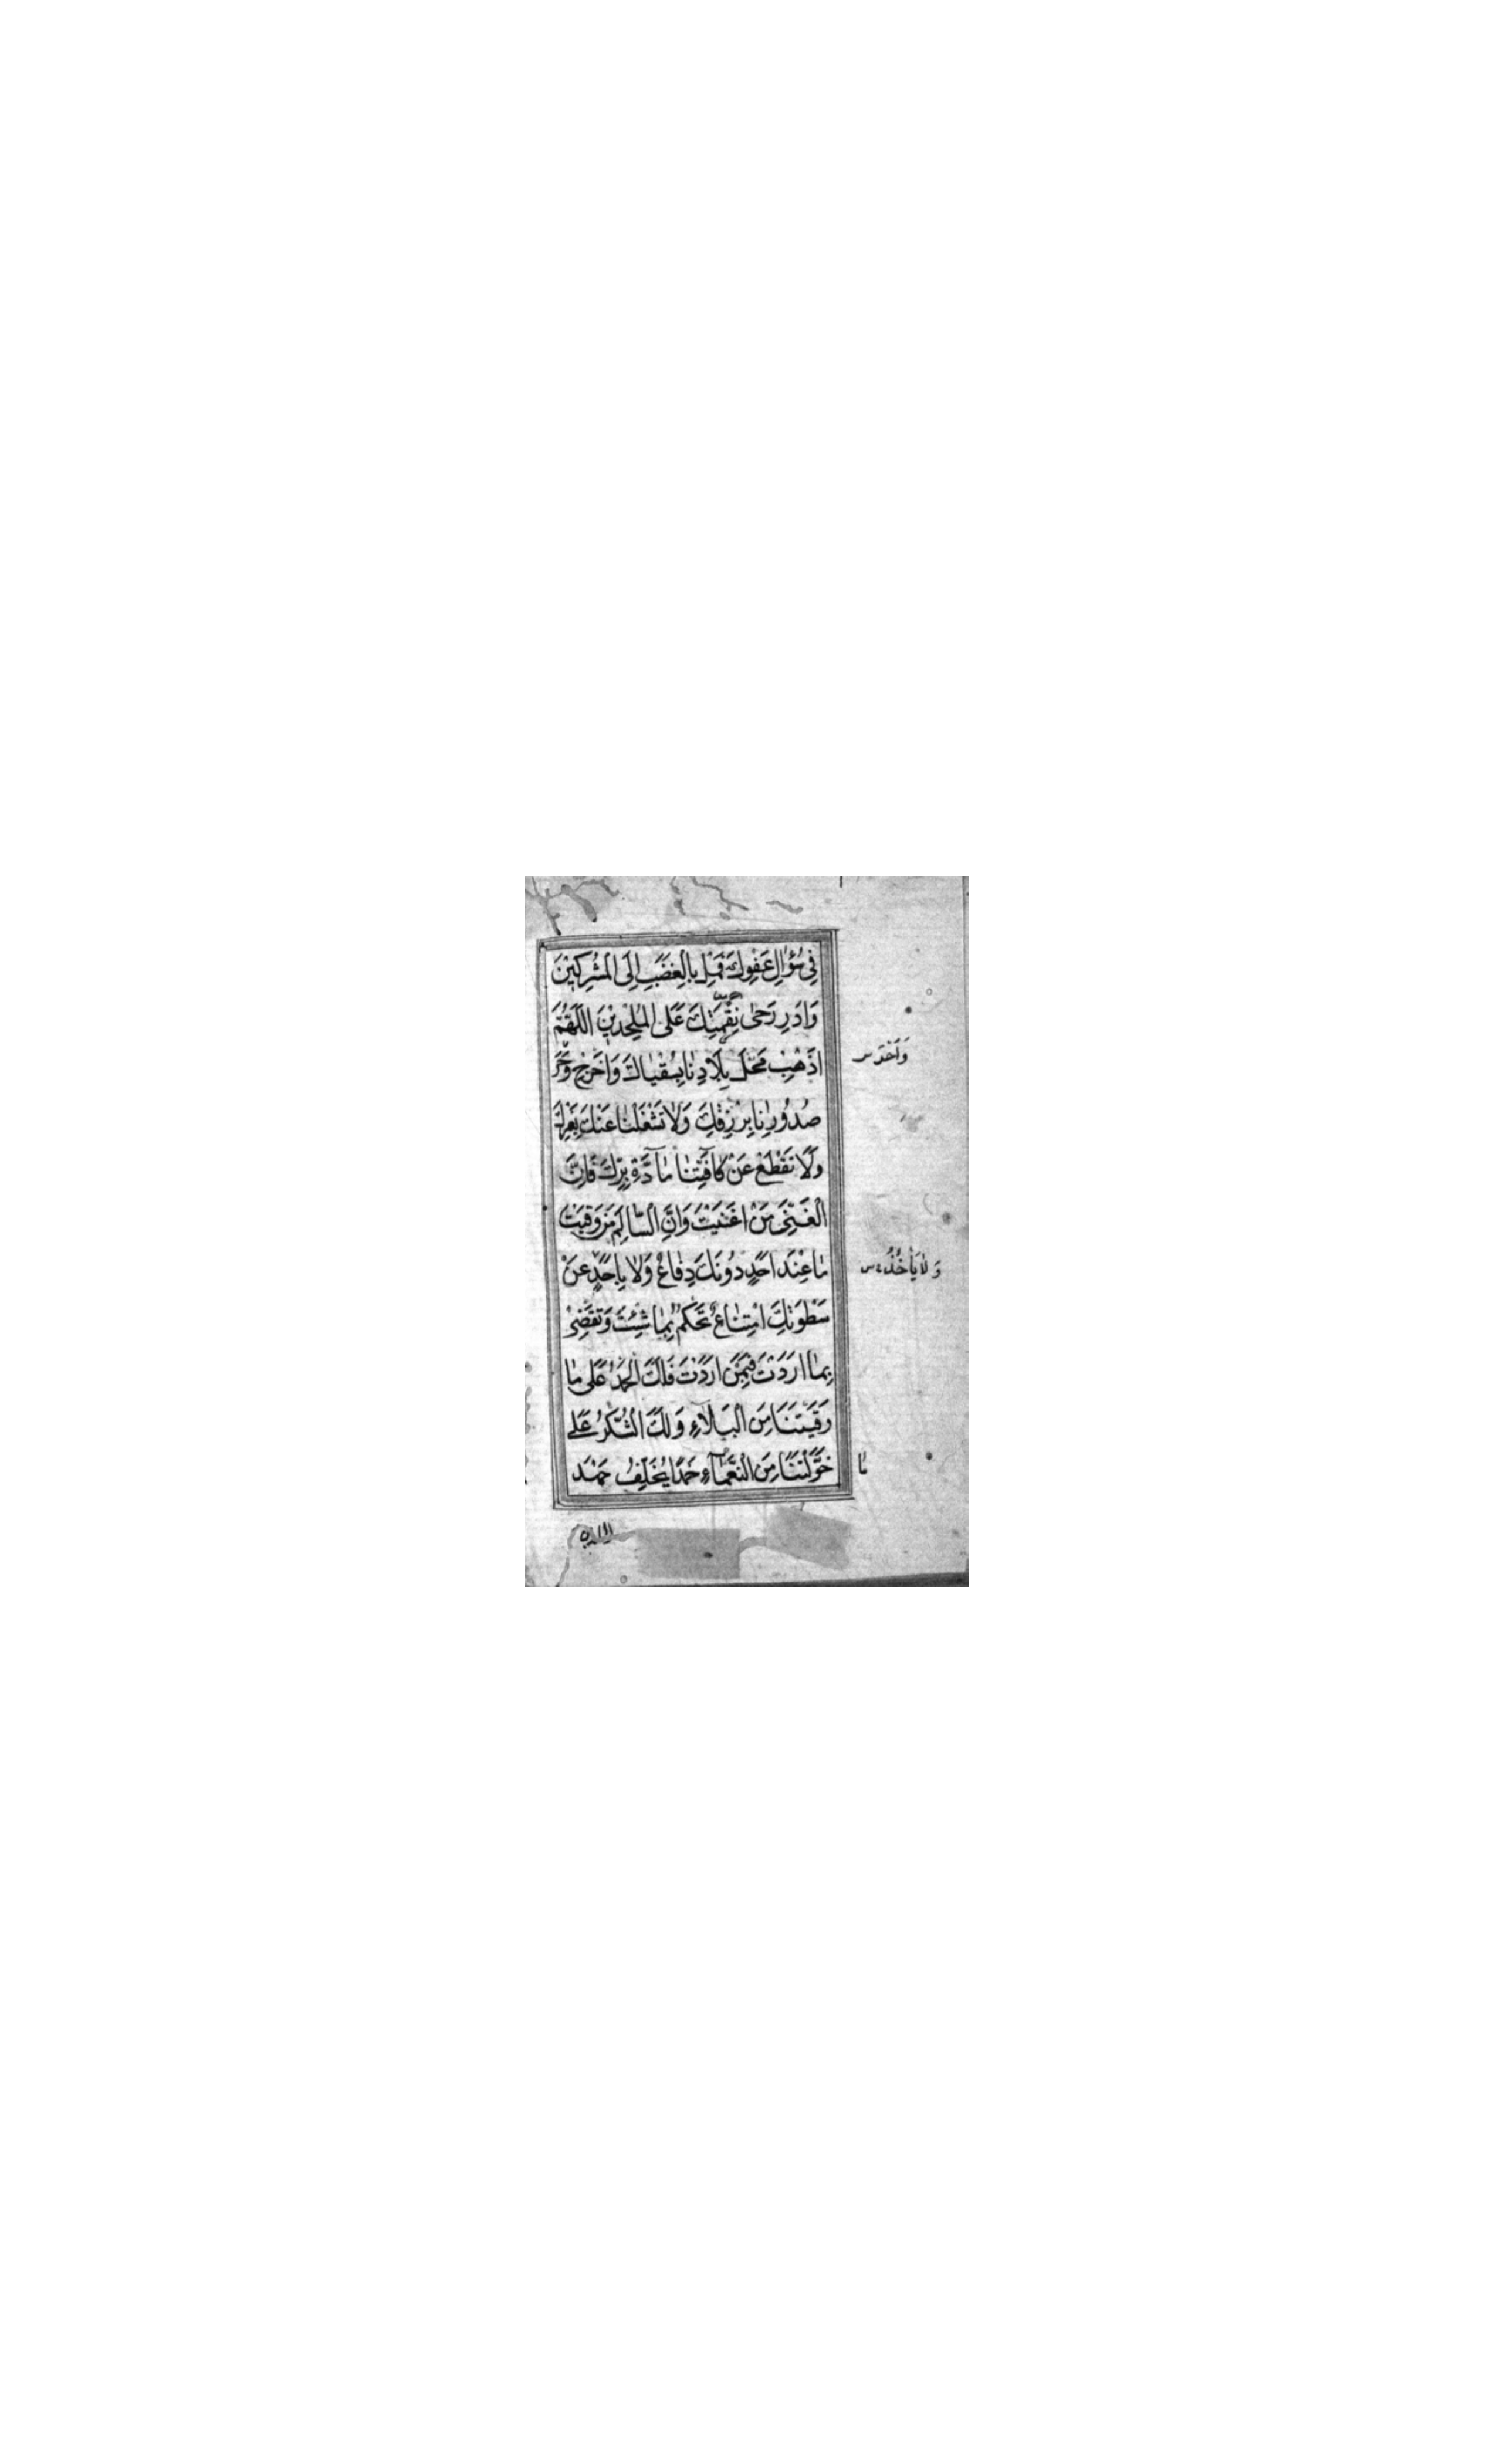 فِي سُؤَالِ عَفْوِكَ فَمِلْ بِالْغَضَبِ إِلَى الْمُشْرِكِينَ
وَأَدِرْ رَحَى نِقْمَتِكَ عَلَى الْمُلْحِدِينَ اللَّهُمَّ
أَذْهِبْ مَحْلَ بِلَادِنَا بِسُقْيَاكَ وَأَخْرِجْ وَحَرَ
صُدُورِنَا بِرِزْقِكَ وَلَا تَشْغَلْنَا عَنْكَ بِغَيْرِكَ
وَلَا تَقْطَعْ عَنْ كَافَّتِنَا مَادَّةَ بِرِّكَ فَإِنَّ
الْغَنِيَّ مَنْ أَغْنَيْتَ وَإِنَّ السَّالِمَ مَنْ وَقَيْتَ
مَا عِنْدَ أَحَدٍ دُونَكَ دِفَاعٌ وَلَا بِأَحَدٍ عَنْ
سَطْوَتِكَ امْتِنَاعٌ تَحْكُمُ بِمَا شِئْتَ وَتَقْضِي
بِمَا أَرَدْتَ فِيمَنْ أَرَدْتَ فَلَكَ الْحَمْدُ عَلَى مَا
وَقَيْتَنَا مِنَ الْبَلَاءِ وَلَكَ الشُّكْرُ عَلَى
خَوَّلْتَنَا مِنَ النَّعْمَاءِ حَمْدًا يُخَلِّفُ حَمْدَ
وَلَا يَأْخُذُ س
مَا